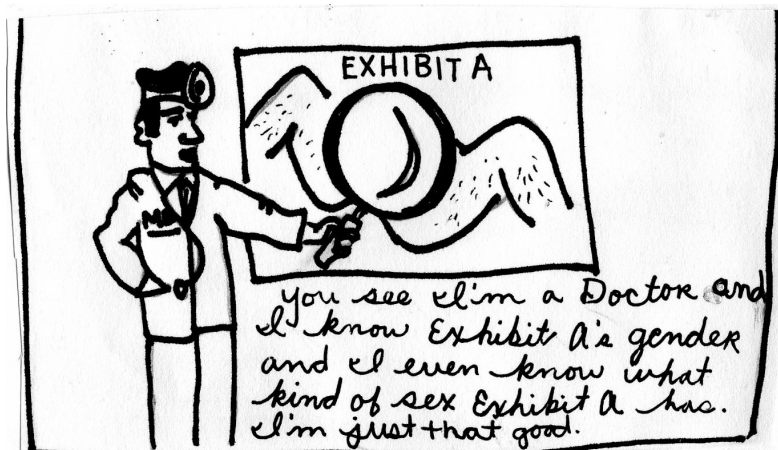 EXHIBIT A
MD
you see I'm a Doctor and
I know Exhibit A's gender
and I even know what
kind of sex Exhibit A has.
I'm just that good.